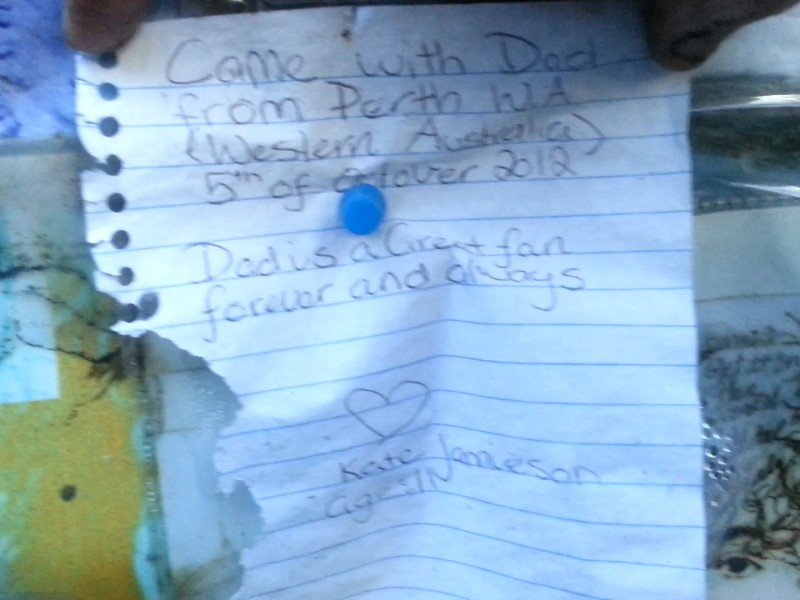 Came with Dad
from Perth WA
(Western Australia)
5th of October 2012
Dad is a Great fan
forever and always
Kate Jamieson